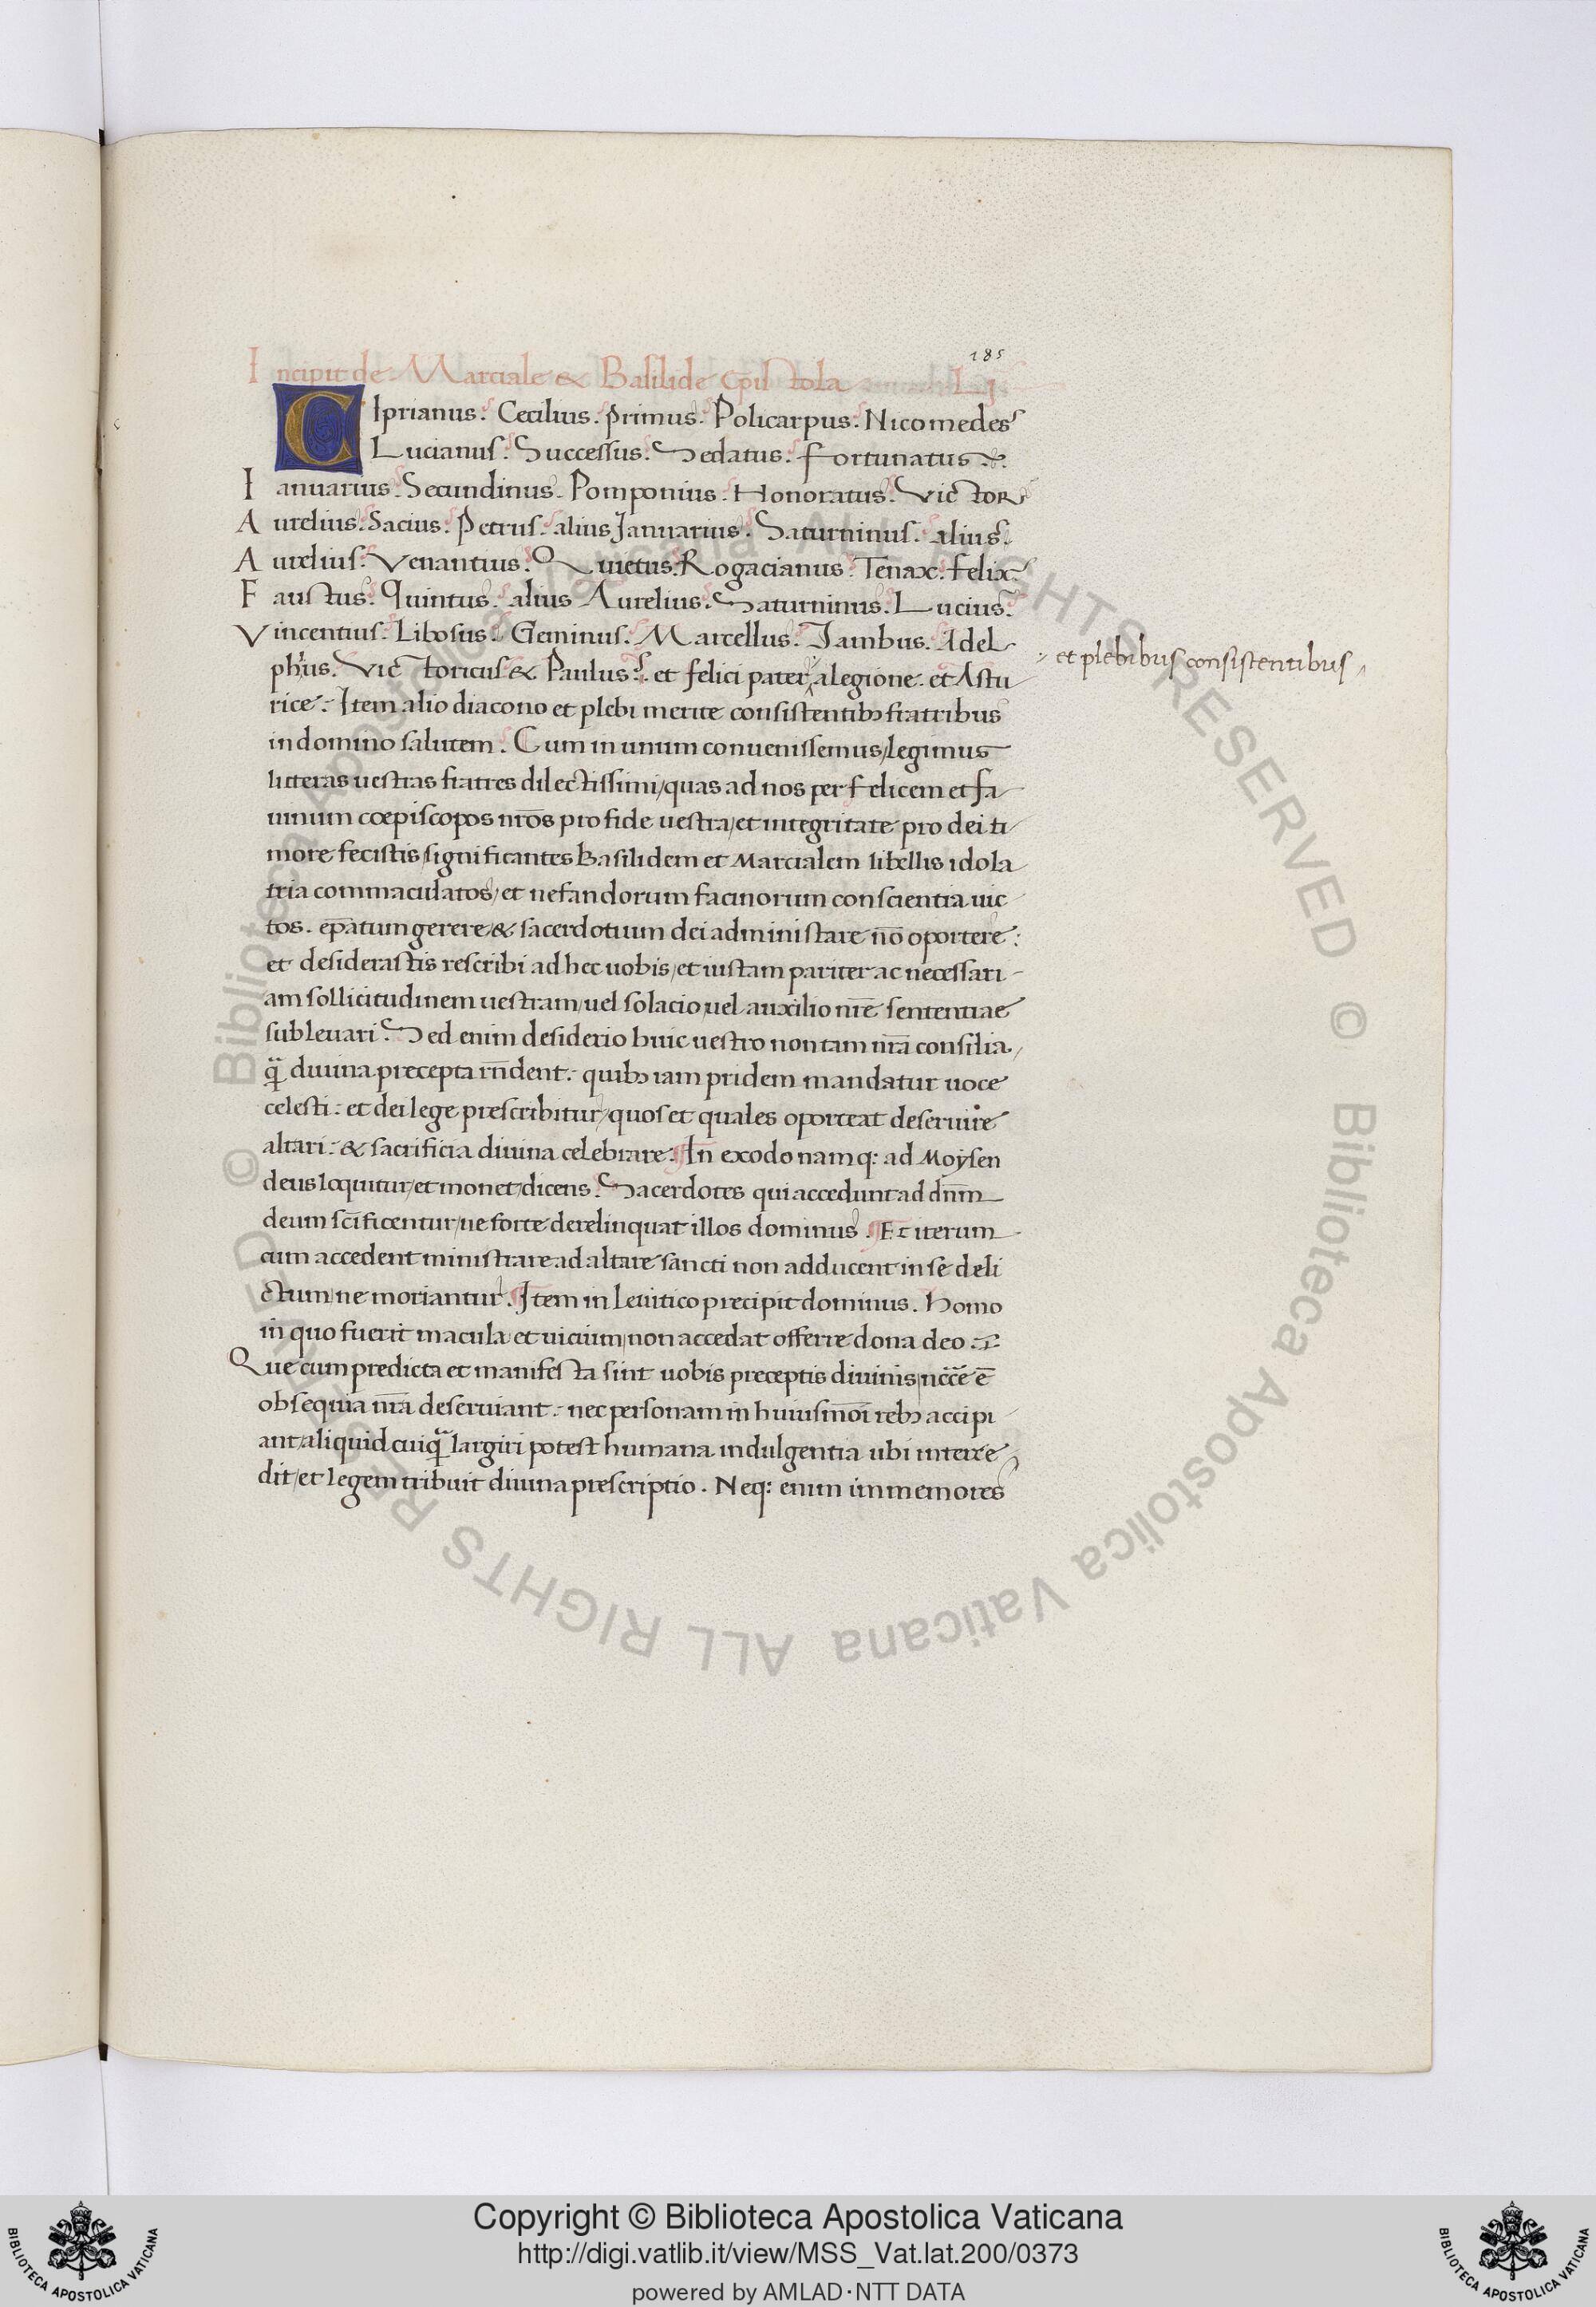 185
Incipit de Marciale & Basilide epistola LJ
CIprianus. Cecilius. primus. Policarpus. Nicomedes
Lucianus. Successus. Sedatus. Fortunatus.
Ianuarius. Secundinus. Pomponius. Honoratus. Victor
Aurelius. Sacius. Petrus. alius Januarius. Saturninus. alius.
Aurelius. Venantius. Quietus. Rogacianus. Tenax. Felix.
Faustus. Quintus. alius Aurelius. Saturninus. Lucius.
Vincentius. Libosus. Geminus. Marcellus. Iambus. Adel-
phius. Victoricus & Paulus. et felici pater alegione. et Astu
et plebibus consistentibus
rice. Item alio diacono et plebi merite consistentibꝫ fratribus
in domino salutem. Cum in unum convenissemus/legimus
litteras uestras fratres dilectissimi/quas ad nos per felicem et sa
uinum coepiscopos nr̄os pro fide uestra/et integritate pro dei ti
more fecistis/significantes Basilidem et Marcialem libellis idola
tria commaculatos/et nefandorum facinorum conscientia uic
tos. ep̄atum gerere & sacerdotium dei administare nō oportere:
et desiderastis rescribi ad hec uobis/et iustam pariter ac necessari-
am sollicitudinem uestram/uel solacio/uel auxilio nr̄e sententiae
sublevari. Sed enim desiderio huic uestro non tam nr̄a consilia/
q̄ divina precepta rn̄dent. quibꝫ iam pridem mandatur uoce
celesti: et dei lege prescribitur/quos et quales oporteat deseruire
altari: & sacrificia divina celebrare. In exodo namq: ad Moysen
deus loquitur/et monet/dicens. Sacerdotes qui accedunt ad dn̄m
deum scīficentur/ne forte derelinquat illos dominus. Et iterum
cum accedent ministrare ad altare sancti non adducent in se deli
ctum/ne moriantur. Item in Leuitico precipit dominus. Homo
in quo fuerit macula et uicium/non accedat offerre dona deo.
Que cum predicta et manifesta sint uobis preceptis divinis/nc̄c̄e ē
obsequia nr̄a deserviant. nec personam in huiusmōi rebꝫ accipi
ant/aliquid cuiq̄ largiri potest humana indulgentia ubi interce
dit/et legem tribuit divina prescriptio. Neq: enim immemores
Copyright © Biblioteca Apostolica Vaticana
http://digi.vatlib.it/view/MSS_Vat.lat.200/0373
powered by AMLAD·NTT DATA
© Biblioteca Apostolica Vaticana ALL RIGHTS RESERVED
© Biblioteca Apostolica Vaticana ALL RIGHTS RESERVED
BIBLIOTECA APOSTOLICA VATICANA
BIBLIOTECA APOSTOLICA VATICANA